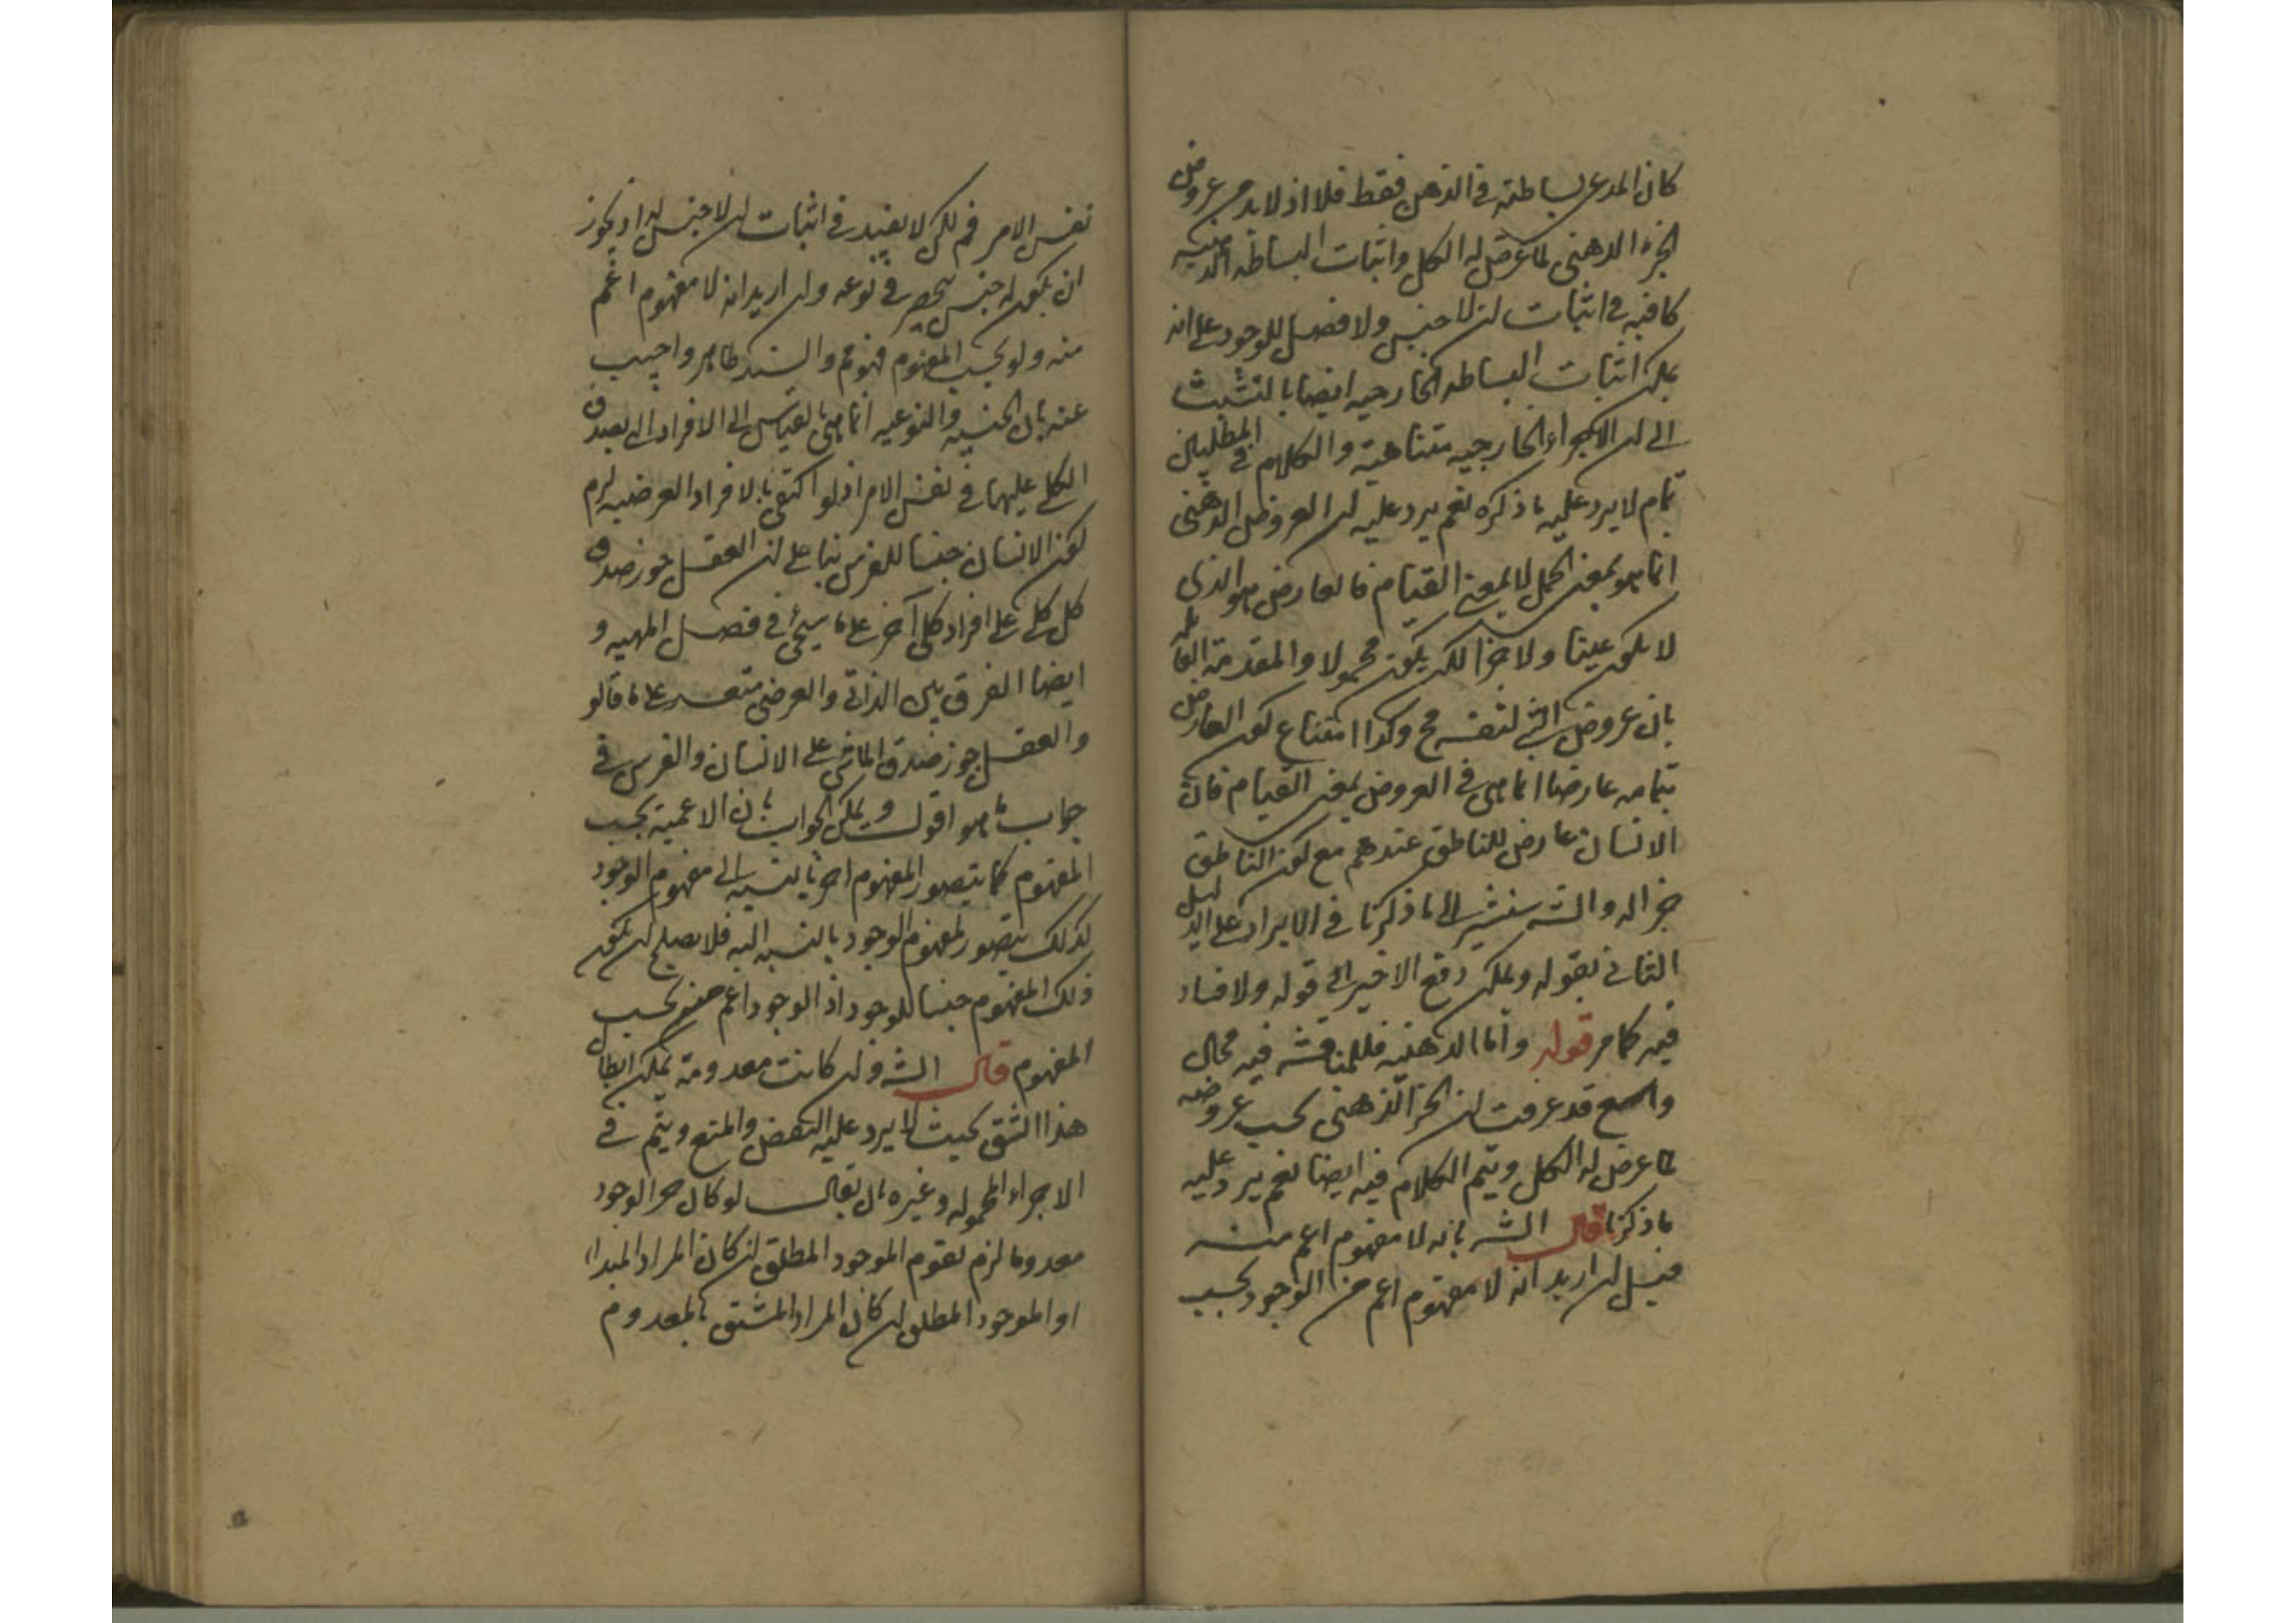 كان المدعى بساطته في الذهن فقط فلا اذ لا بد من عروض
الجزء الذهني لما عرض له الكل واثبات البساطه الذهنيه
كافيه في اثبات ان لا جنس ولا فصل للوجود على انه
يمكن اثبات البساطه الخارجيه ايضا بالتشبث
الى ان الاجزاء الخارجيه متناهية والكلام في المطلبين
تمام لا يرد عليه ما ذكره نعم يرد عليه ان العروض الذهني
انما هو بمعنى الحمل لا بمعنى القيام فالعارض هو الذي
لا يكون عينا ولا جزا لكن يكون محمولا والمقدمة القائله
بان عروض الشي لنفسه مح وكذا امتناع كون العارض
بتمامه عارضا انما هي في العروض بمعنى القيام فان
الانسان عارض للناطق عندهم مع كون الناطق
جزا له والشه سيشير الى ما ذكرنا في الايراد على الدليل
الثاني بقوله ويمكن دفع الاخير الى قوله ولا فساد
فيه كما مر قوله واما الذهنيه فللمناقشه فيه مجال
واسع قد عرفت ان الجزا الذهني يجب عروضه
لما عرض له الكل ويتم الكلام فيه ايضا نعم يرد عليه
ما ذكرنا قال الشه بانه لا مفهوم اعم منه
قيل ان اريد انه لا مفهوم اعم من الوجود بحسب
نفس الامر فم لكن لا يفيد في اثبات ان لا جنس له اذ يجوز
ان يكون له جنس ينحصر في نوعه وان اريد انه لا مفهوم اعم
منه ولو بحسب المفهوم فهو مم والسند ظاهر واجيب
عنه بان الجنسيه والنوعيه انما هي بالقياس الى الافراد التي يصدق
الكلي عليها في نفس الامر اذ لو اكتفى بالافراد الفرضيه لزم
كون الانسان جنسا للفرس بنا على ان العقل جوز صدق
كل كلي على افراد كلي آخر على ما سيجئ في فصل المهيه و
ايضا الفرق بين الذاتي والعرضي متعسر على ما قالو
والعقل جوز صدق الماشي على الانسان والفرس في
جواب ما هو اقول ويمكن الجواب بان الاعمية بحسب
المفهوم كما يتصور لمفهوم اخر بالنسبه الى مفهوم الوجود
كذلك يتصور لمفهوم الوجود بالنسبه اليه فلا يصلح ان يكون
ذلك المفهوم جنسا للوجود اذ الوجود اعم منه بحسب
المفهوم قال الشه وان كانت معدومة يمكن ابطال
هذا الشق بحيث لا يرد عليه النقض والمنع ويتم في
الاجزاء المحموله وغيره بان يقال لو كان جز الوجود
معدوما لزم تقوم الموجود المطلق ان كان المراد المبدا
او الموجود المطلق ان كان المراد المشتق بالمعدوم